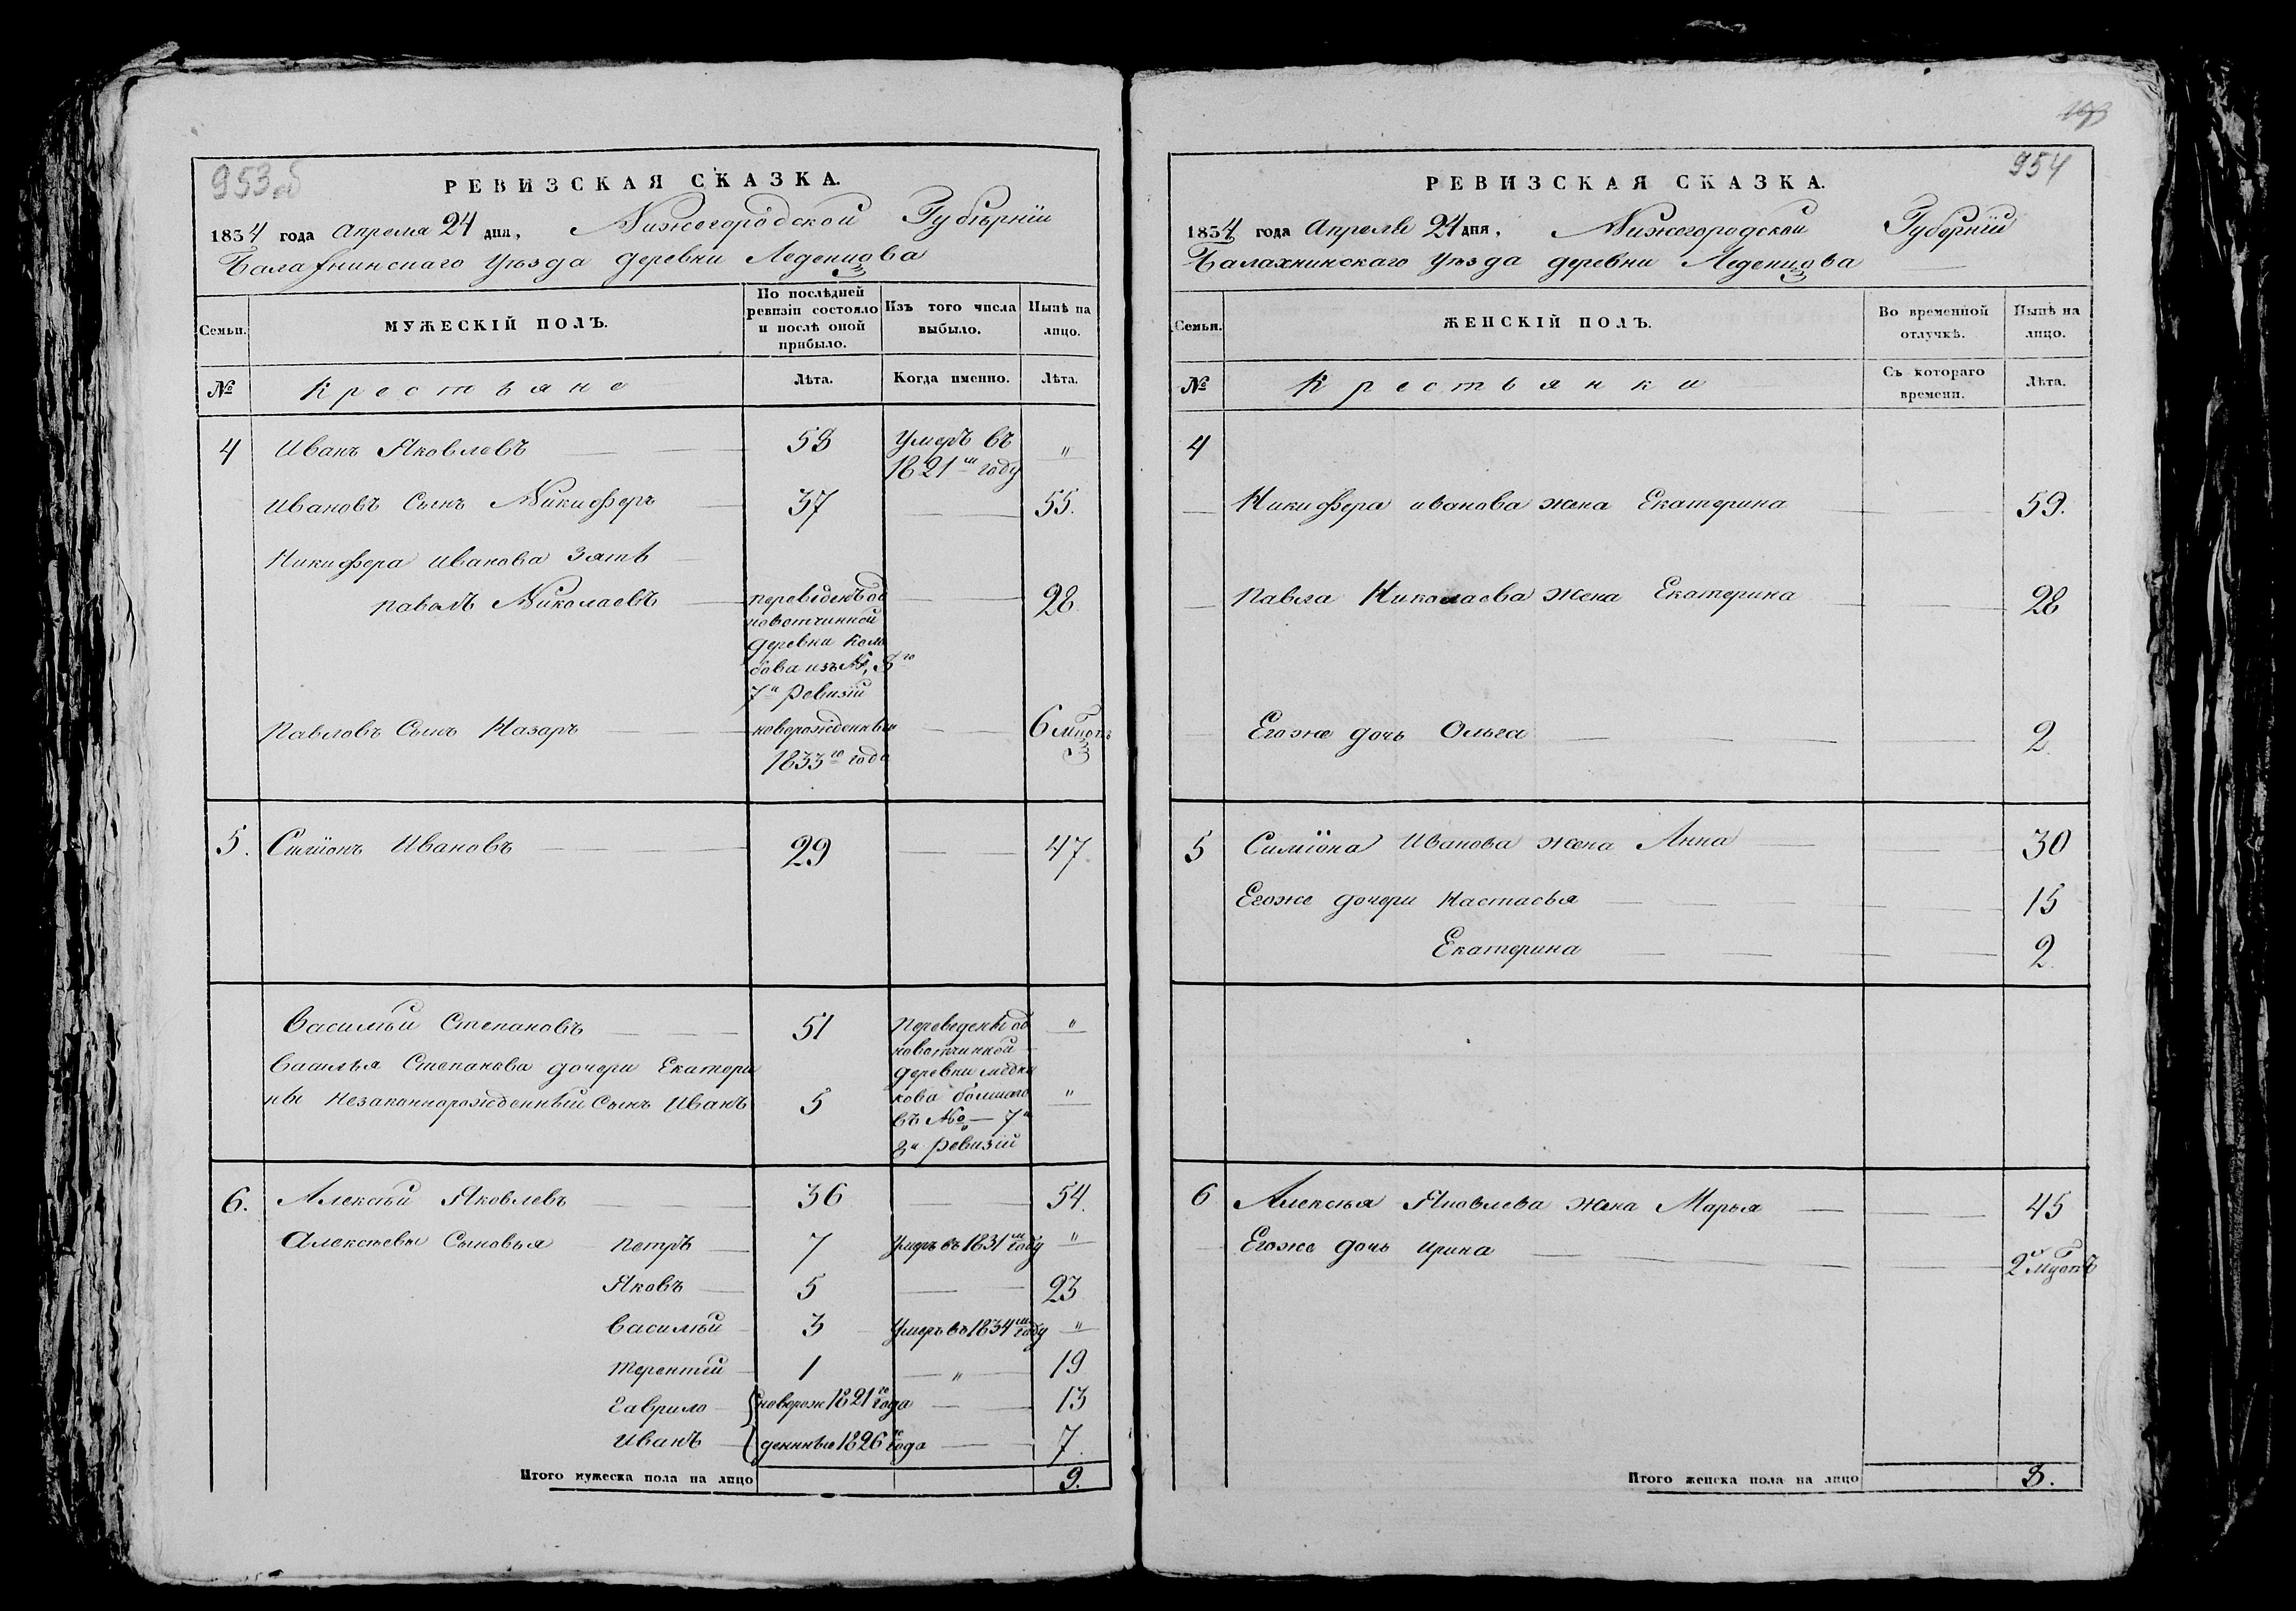 953об
РЕВИЗСКАЯ СКАЗКА.
1834 года Апреля 24 дня, Нижегородской Губернiи
Балахнинскаго Уезда деревни Леденцова
Семьи.
МУЖЕСКIЙ ПОЛЪ.
По послѣдней ревизiи состояло и послѣ оной прибыло.
Изъ того числа выбыло.
Нынѣ на лицо.
№
Крестьяне
Лѣта.
Когда именно.
Лѣта.
4 Иванъ Яковлевъ 58 Умеръ въ 1821м году "
Ивановъ Сынъ Никифоръ 37 55.
Никифора Иванова Зять
Павелъ Николаевъ переведенъ од 28
новотчинной
деревни
изъ № 8го
7й Ревизiи
Павловъ Сынъ Назаръ новорожденный 6 мцовъ
1833го года
5. Симiонъ Ивановъ 29 47.
Василiй Степановъ 51 Переведены од "
новотчинной
Василья Степанова дочери Екатери деревни
ны незаконнорожденный Сынъ Иванъ 5 "
въ № 7й
8й Ревизiи
6. Алексѣй Яковлевъ 36 54.
Алексѣевы Сыновья Петръ 7 Умеръ въ 1831м году "
Яковъ 5 23
Василiй 3 Умеръ въ 1834м году "
Терентей 1 " 19
Гаврило новорож 1821го года 13
Иванъ денные 1826го года 7.
Итого мужеска пола на лицо 9.
954
РЕВИЗСКАЯ СКАЗКА.
1834 года Апреля 24 дня, Нижегородской Губернiи
Балахнинскаго Уезда деревни Леденцова
Семьи.
ЖЕНСКIЙ ПОЛЪ.
Во временной отлучкѣ.
Нынѣ на лицо.
№
Крестьянки
Съ котораго времени.
Лѣта.
4
Никифора Иванова жена Екатерина 59.
Павла Николаева жена Екатерина 28
Егоже дочь Ольга 2.
5 Симiона Иванова жена Анна 30
Егоже дочери Настасья 15
Екатерина 2.
6 Алексѣя Яковлева жена Марья 45
Егоже дочь Ирина 2 мцовъ
Итого женска пола на лицо 8.